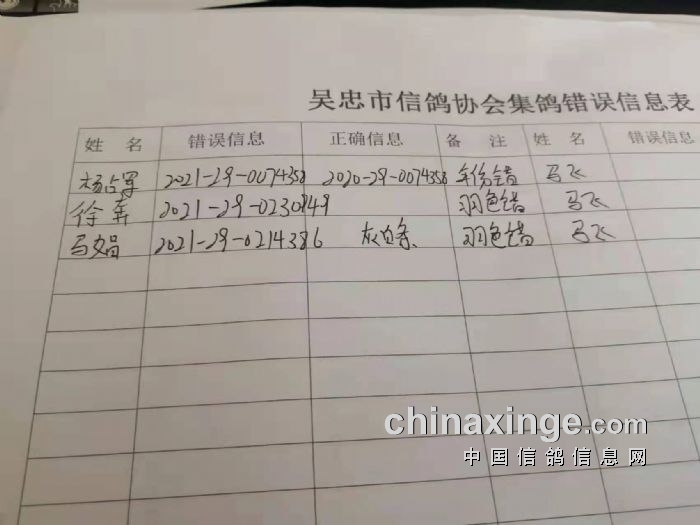 吴忠市信鸽协会集鸽错误信息表
姓 名 错误信息 正确信息 备 注 姓 名 错误信息
杨占军 2021-29-0074358 2020-29-0074358 年份错 马飞
徐奔 2021-29-0230849 羽色错 马飞
马娟 2021-29-0214386 灰白条 羽色错 马飞
chinaxinge.com
中国信鸽信息网